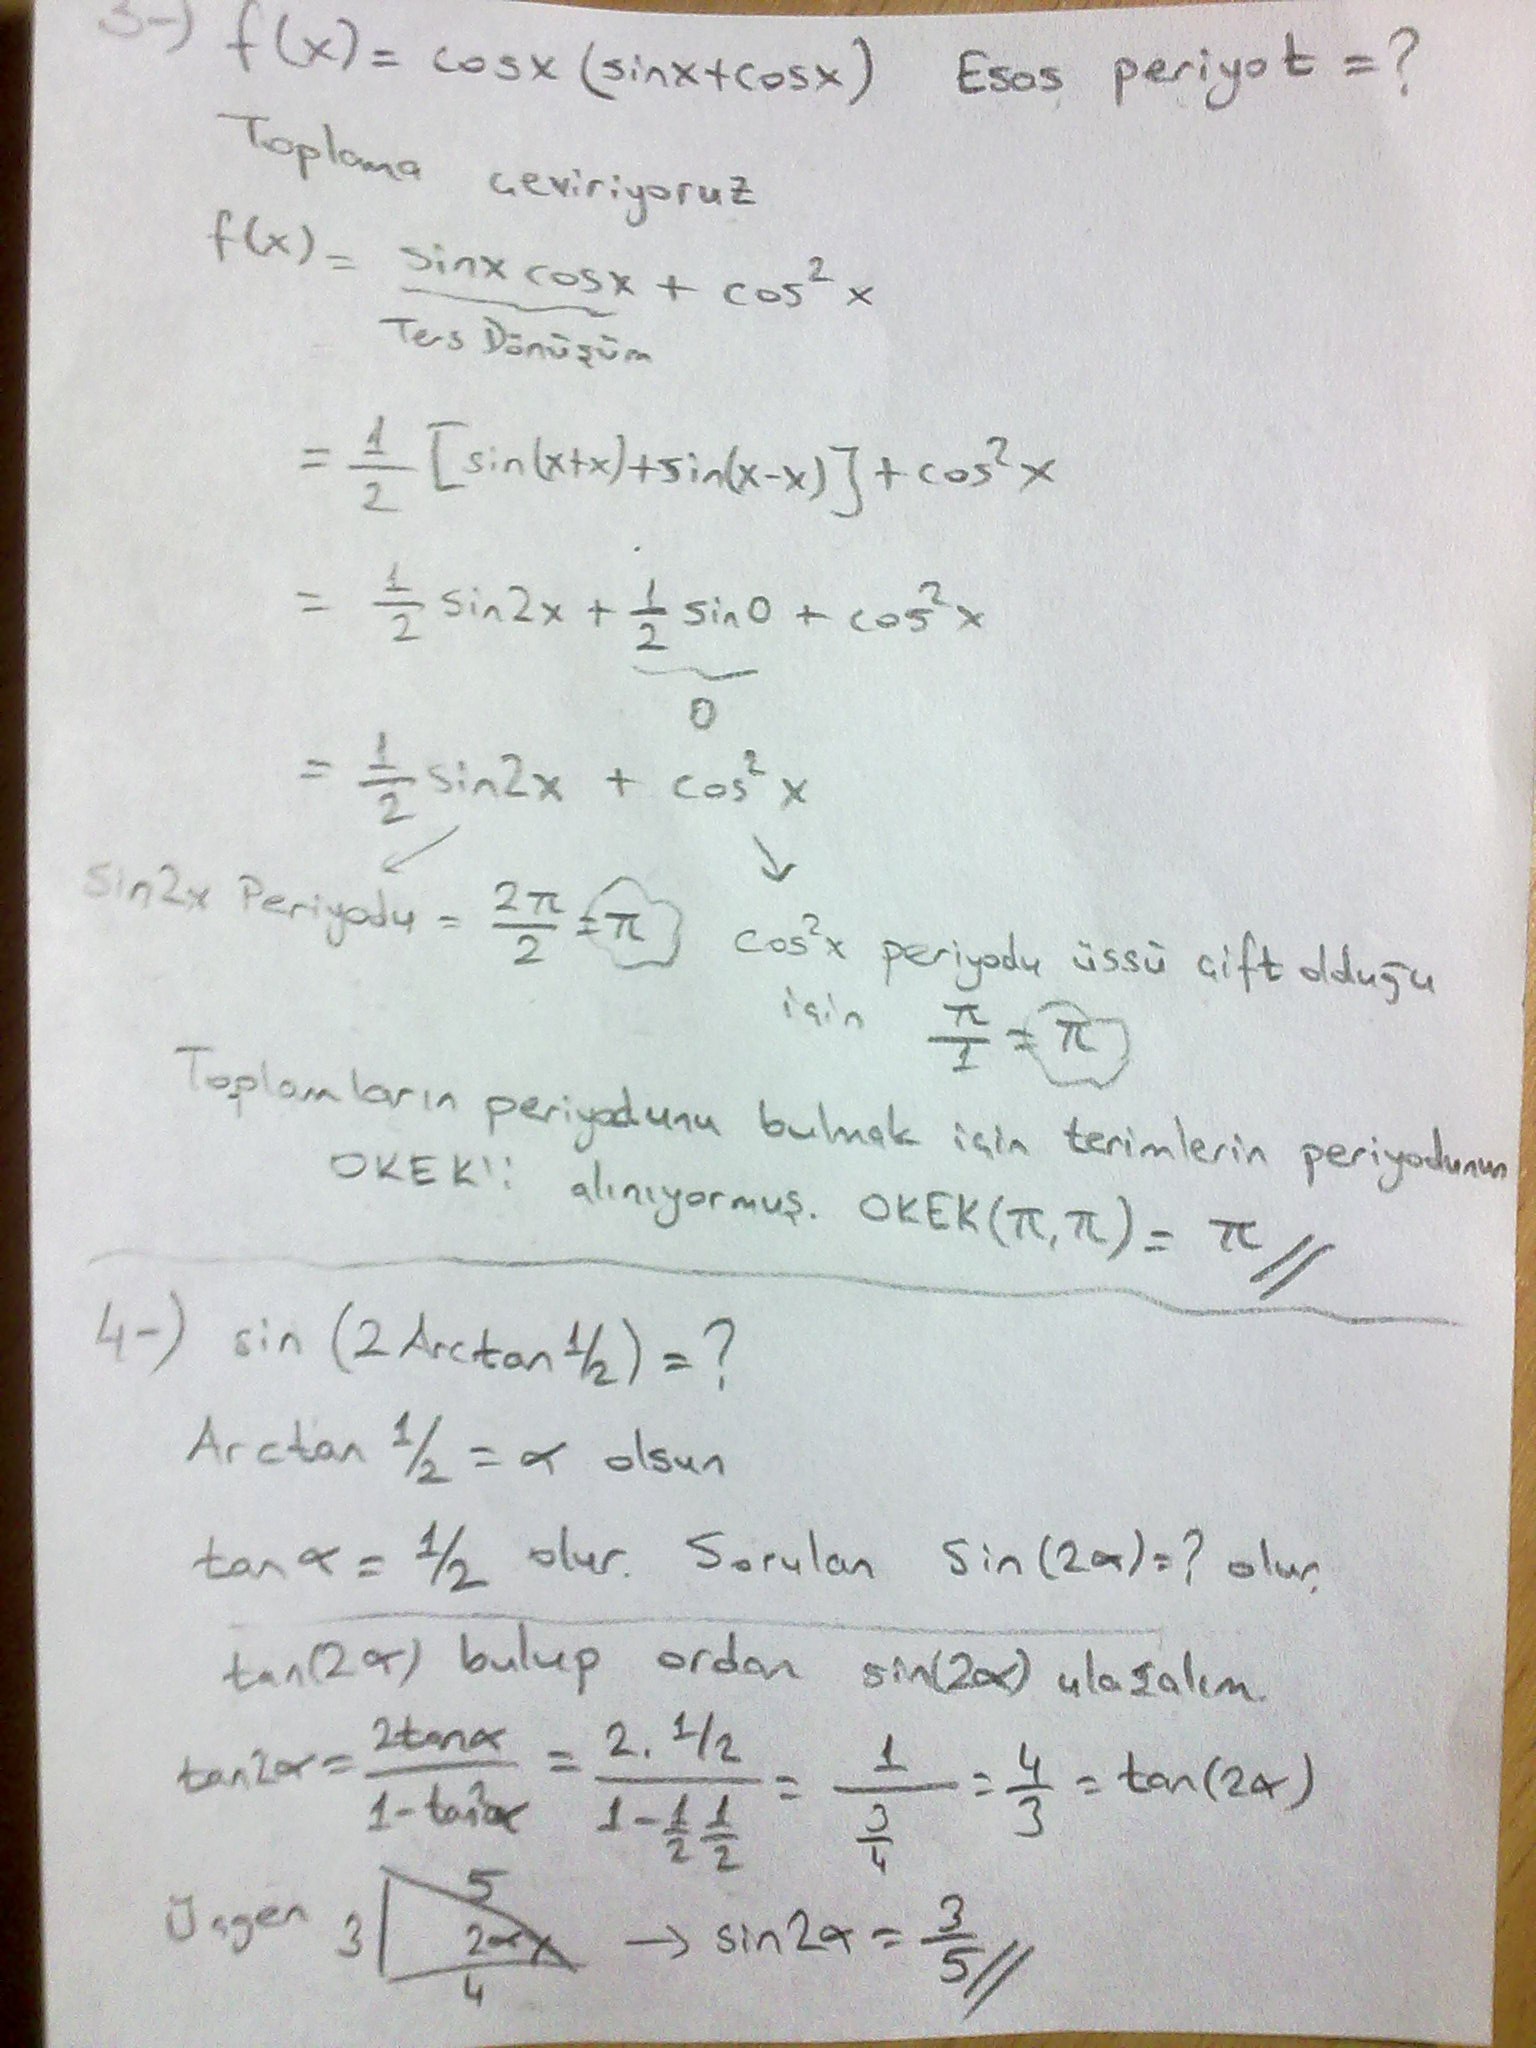 3-) f(x) = cosx (sinx+cosx) Esas periyot = ?
Toplama çeviriyoruz
f(x) = sinx cosx + cos²x
Ters Dönüşüm
= 1/2 [sin(x+x)+sin(x-x)] + cos²x
= 1/2 sin2x + 1/2 sin0 + cos²x
0
= 1/2 sin2x + cos²x
↙ ↘
sin2x Periyodu = 2π/2 = π
cos²x periyodu üssü çift olduğu
için π/1 = π
Toplamların periyodunu bulmak için terimlerin periyodunun
OKEK'i alınıyormuş. OKEK(π,π) = π //
4-) sin (2 Arctan 1/2) = ?
Arctan 1/2 = α olsun
tanα = 1/2 olur. Sorulan Sin(2α)=? olur.
tan(2α) bulup ordan sin(2α) ulaşalım.
tan2α = 2tanα/1-tan²α = 2.1/2/1-1/2 1/2 = 1/3/4 = 4/3 = tan(2α)
Üçgen 3 5 2α 4 → sin2α = 3/5 //